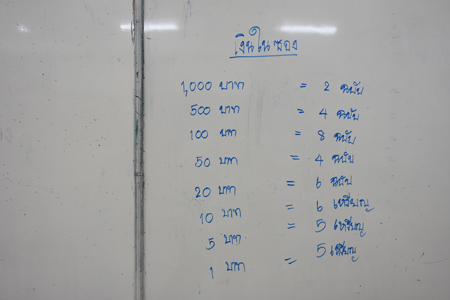 เงินในซอง
1,000 บาท = 2 ฉบับ
500 บาท = 4 ฉบับ
100 บาท = 8 ฉบับ
50 บาท = 4 ฉบับ
20 บาท = 6 ฉบับ
10 บาท = 6 เหรียญ
5 บาท = 5 เหรียญ
1 บาท = 5 เหรียญ